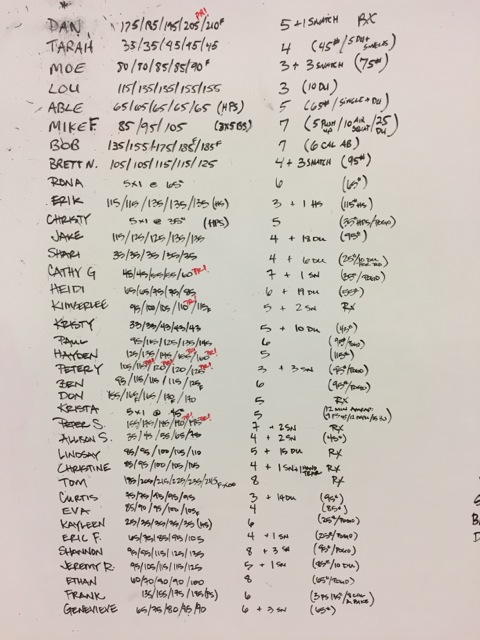 DAN 175/185/195/205/210F PR! 5 + 1 SNATCH RX
TARAH 35/35/45/45/45 4 (45#/5 DU+
MOE 80/80/85/85/90F 3 + 3 SNATCH (75#)
LOU 115/135/155/155/155 3 (10 DU)
ABLE 65/65/65/65/65 (HPS) 5 (65#/SINGLE+DU)
MIKE F. 85/95/105 (3X5 BS) 7 (5 PUSH UP/10 AIR SQUAT/25 DU)
BOB 135/155/175/185/185F 7 (6 CAL AB)
BRETT N. 105/105/115/115/125 4 + 3 SNATCH (95#)
RONA 5x1 @ 65# 6 (65#)
ERIK 115/115/135/135/135 (HS) 3 + 1 HS (115#HS)
CHRISTY 5x1 @ 35# (HPS) 5
JAKE 115/125/125/135/135 4 + 13 DU (95#)
SHARI 35/35/35/35/35 4 + 6 DU
CATHY G 45/45/55/55/60 PR! 7 + 1 SN
HEIDI 65/65/75/75/85 6 + 19 DU (55#)
KIMBERLEE 95/100/105/110/115F PR! 5 + 2 SN RX
KRISTY 33/33/43/43/43 5 + 10 DU (43#)
PAUL 95/115/125/135/145 6
HAYDEN 125/135/145/155/160 PR! PR! 5 (115#)
PETER Y 105/115/120/120/125 PR! PR! PR! 3 + 3 SN
BEN 95/115/115/115/125 6
DON 155/165/165/170 5 RX
KRISTA 5x1 @ 45# 5 (12 MIN AMRAP:
S. PR! PR! 7 + 2 SN RX
ALLISON S. 35/45/55/65/70 4 + 2 SN (45#)
LINDSAY 85/95/100/105/110 5 + 15 DU RX
CHRISTINE 85/95/100/105/105 4 + 1 SN + 1 HAND TEAR RX
TOM 185/205/215/225/235/245 8 RX
CURTIS 35/75/95/95/95 3 + 14 DU (95#)
EVA 85/90/95/100/105F 4 (85#)
KAYLEEN 25/35/35/35/35 (HS) 6
ERIC F. 65/75/85/95/105 4 + 1 SN
SHANNON 95/95/115/125/135 8 + 3 SN
JEREMY R. 95/105/115/115/125 5 + 1 SN (85#/10 DU)
ETHAN 60/70/90/90/100 8
FRANK 135/155/175/185 6
GENEVIEVE 65/75/80/85/90 6 + 3 SN (65#)